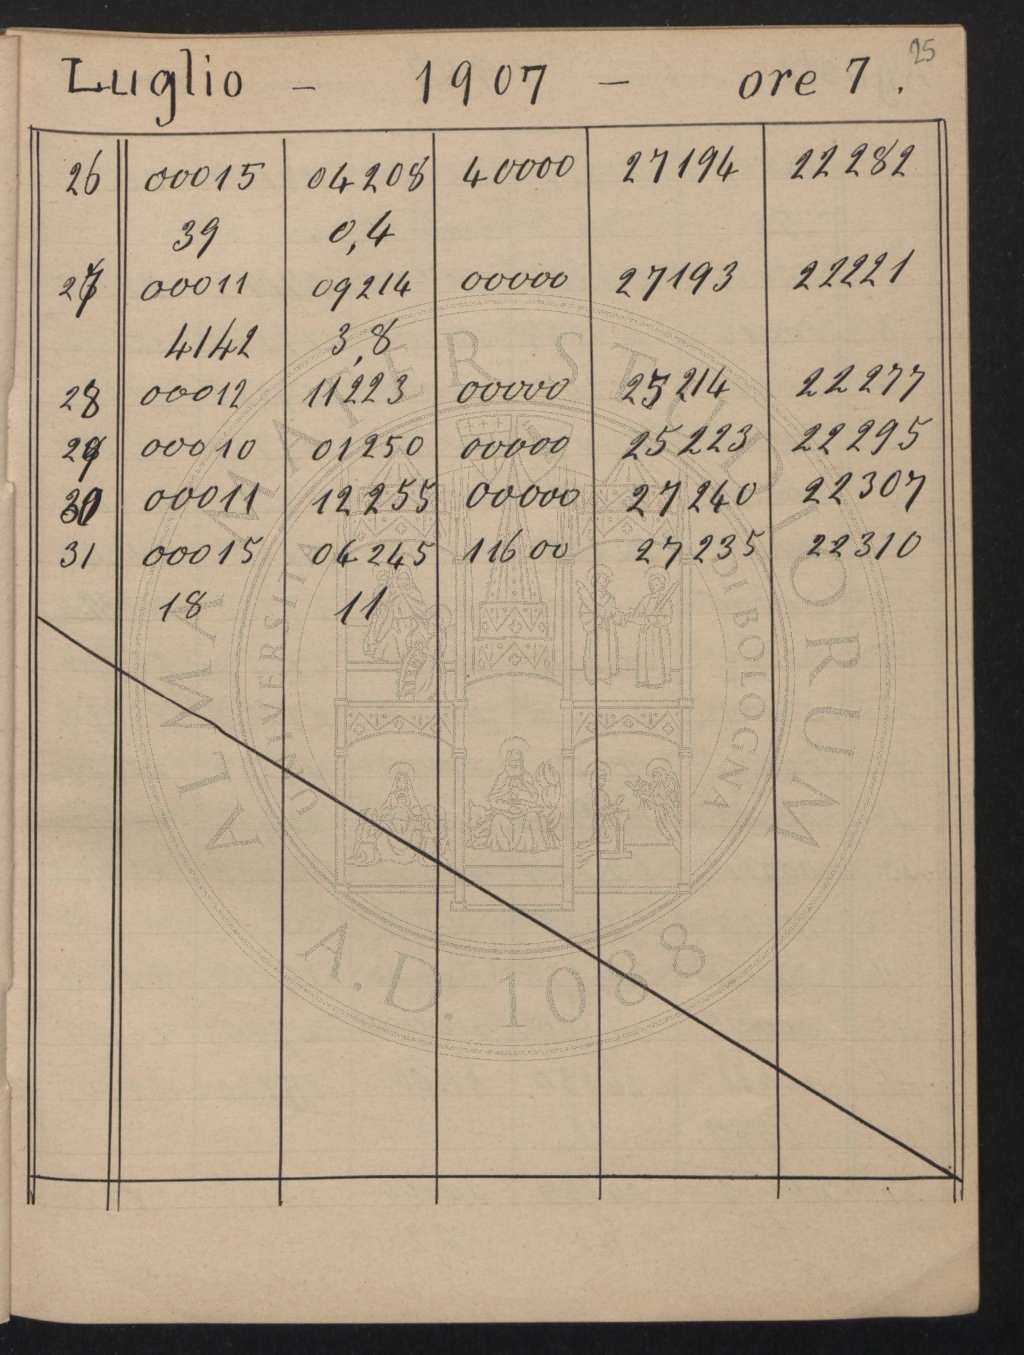 25
Luglio - 1907 - ore 7.
26 00015 04208 40000 27194 22282
39 0,4
27 00011 09214 00000 27193 22221
4142 3,8
28 00012 11223 00000 25214 22277
29 00010 01250 00000 25223 22295
30 00011 12255 00000 27240 22307
31 00015 04245 11600 27235 22310
18 11
ALMA MATER STUDIORUM
UNIVERSITÀ DI BOLOGNA
A.D. 1088